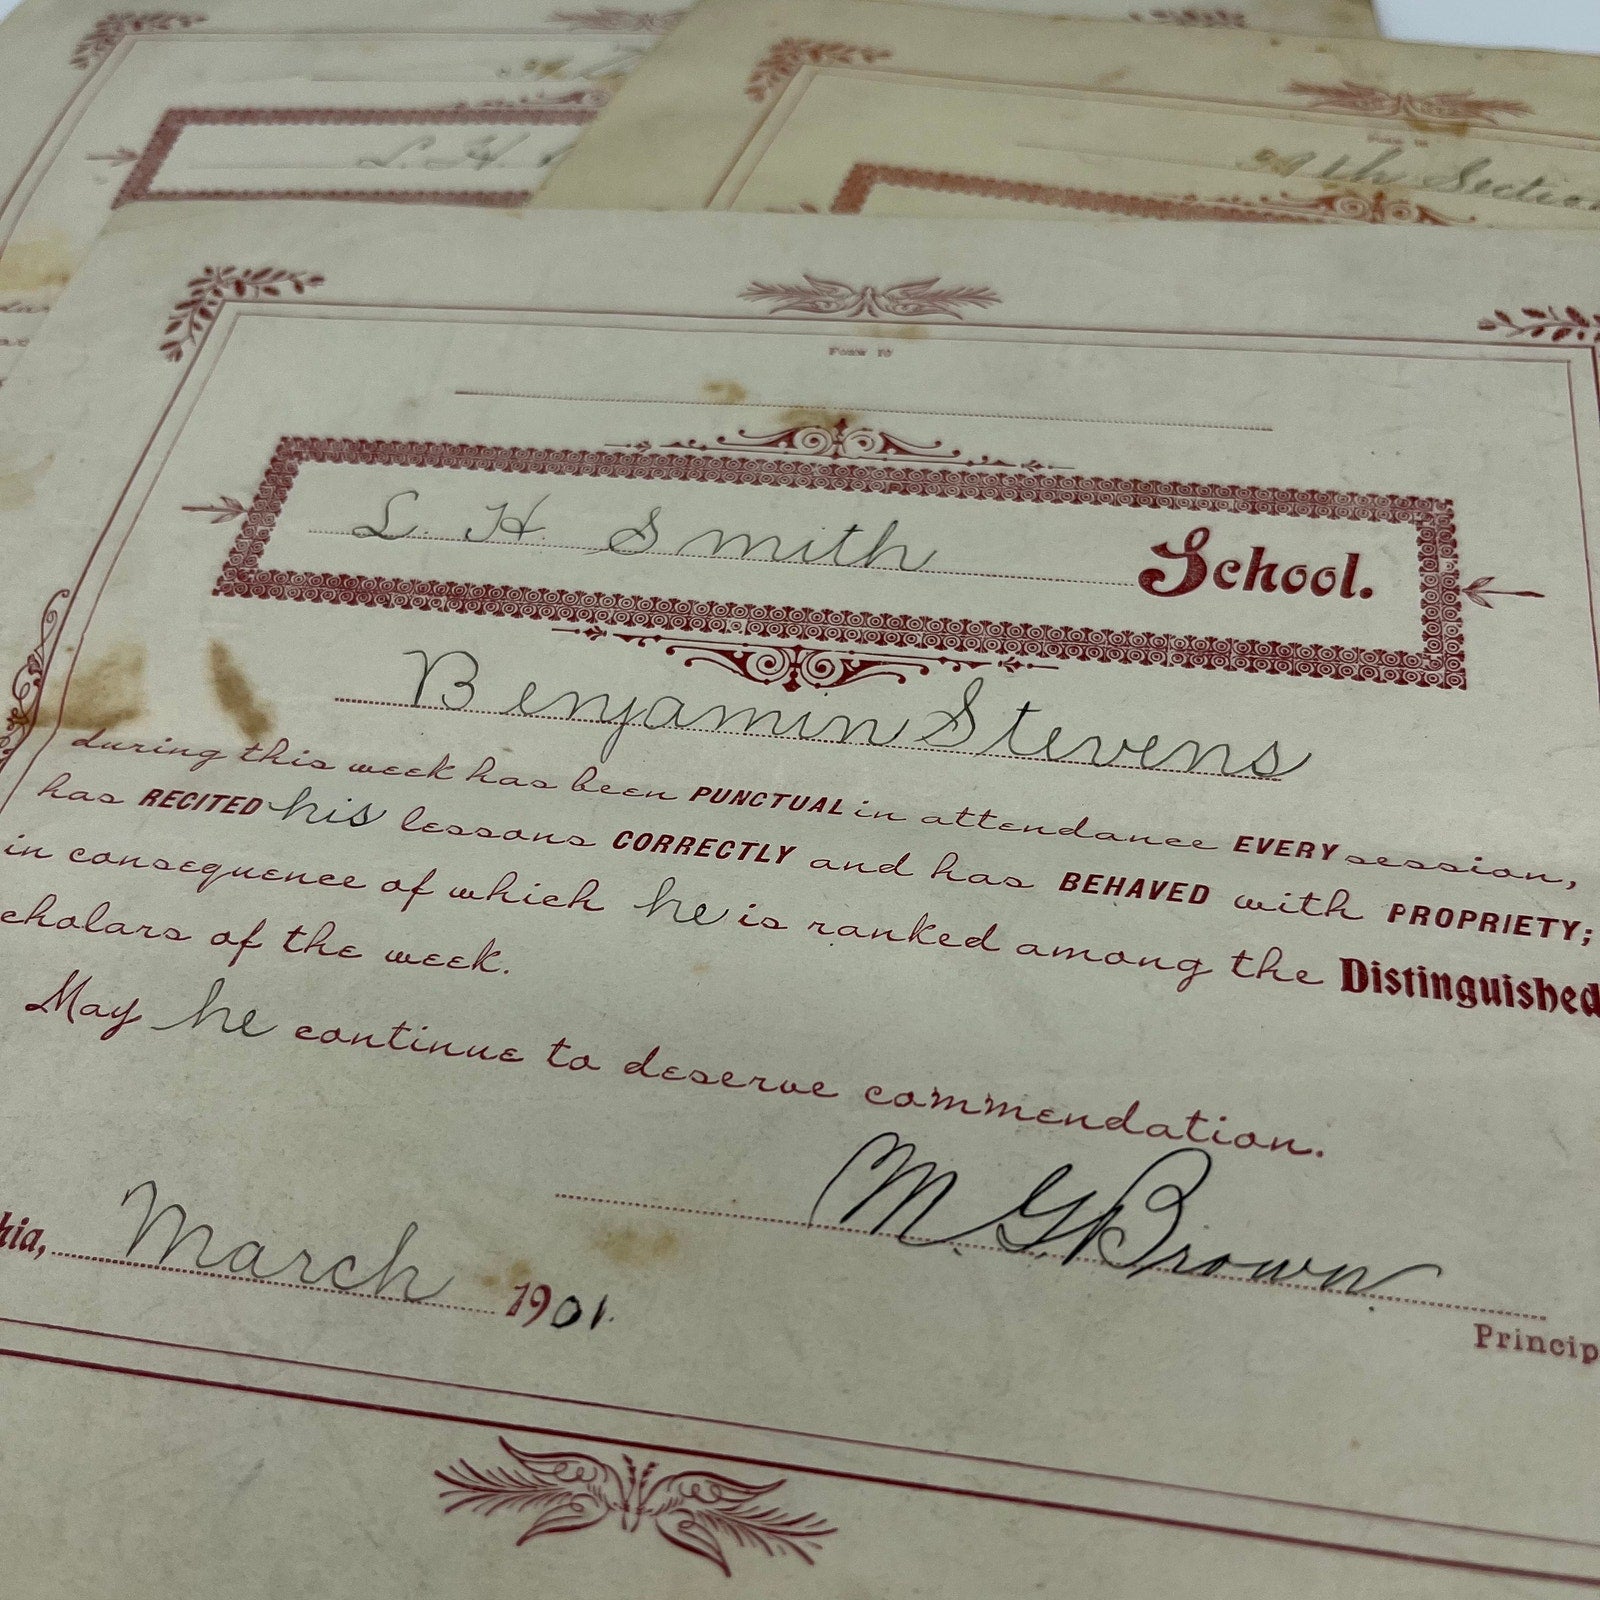 L. H.
29th Section
Form 10
L. H. Smith School.
Benjamin Stevens
during this week has been PUNCTUAL in attendance EVERY session,
has RECITED his lessons CORRECTLY and has BEHAVED with PROPRIETY;
in consequence of which he is ranked among the Distinguished
cholars of the week.
May he continue to deserve commendation.
M. G. Brown
Princip
hia, March 1901.